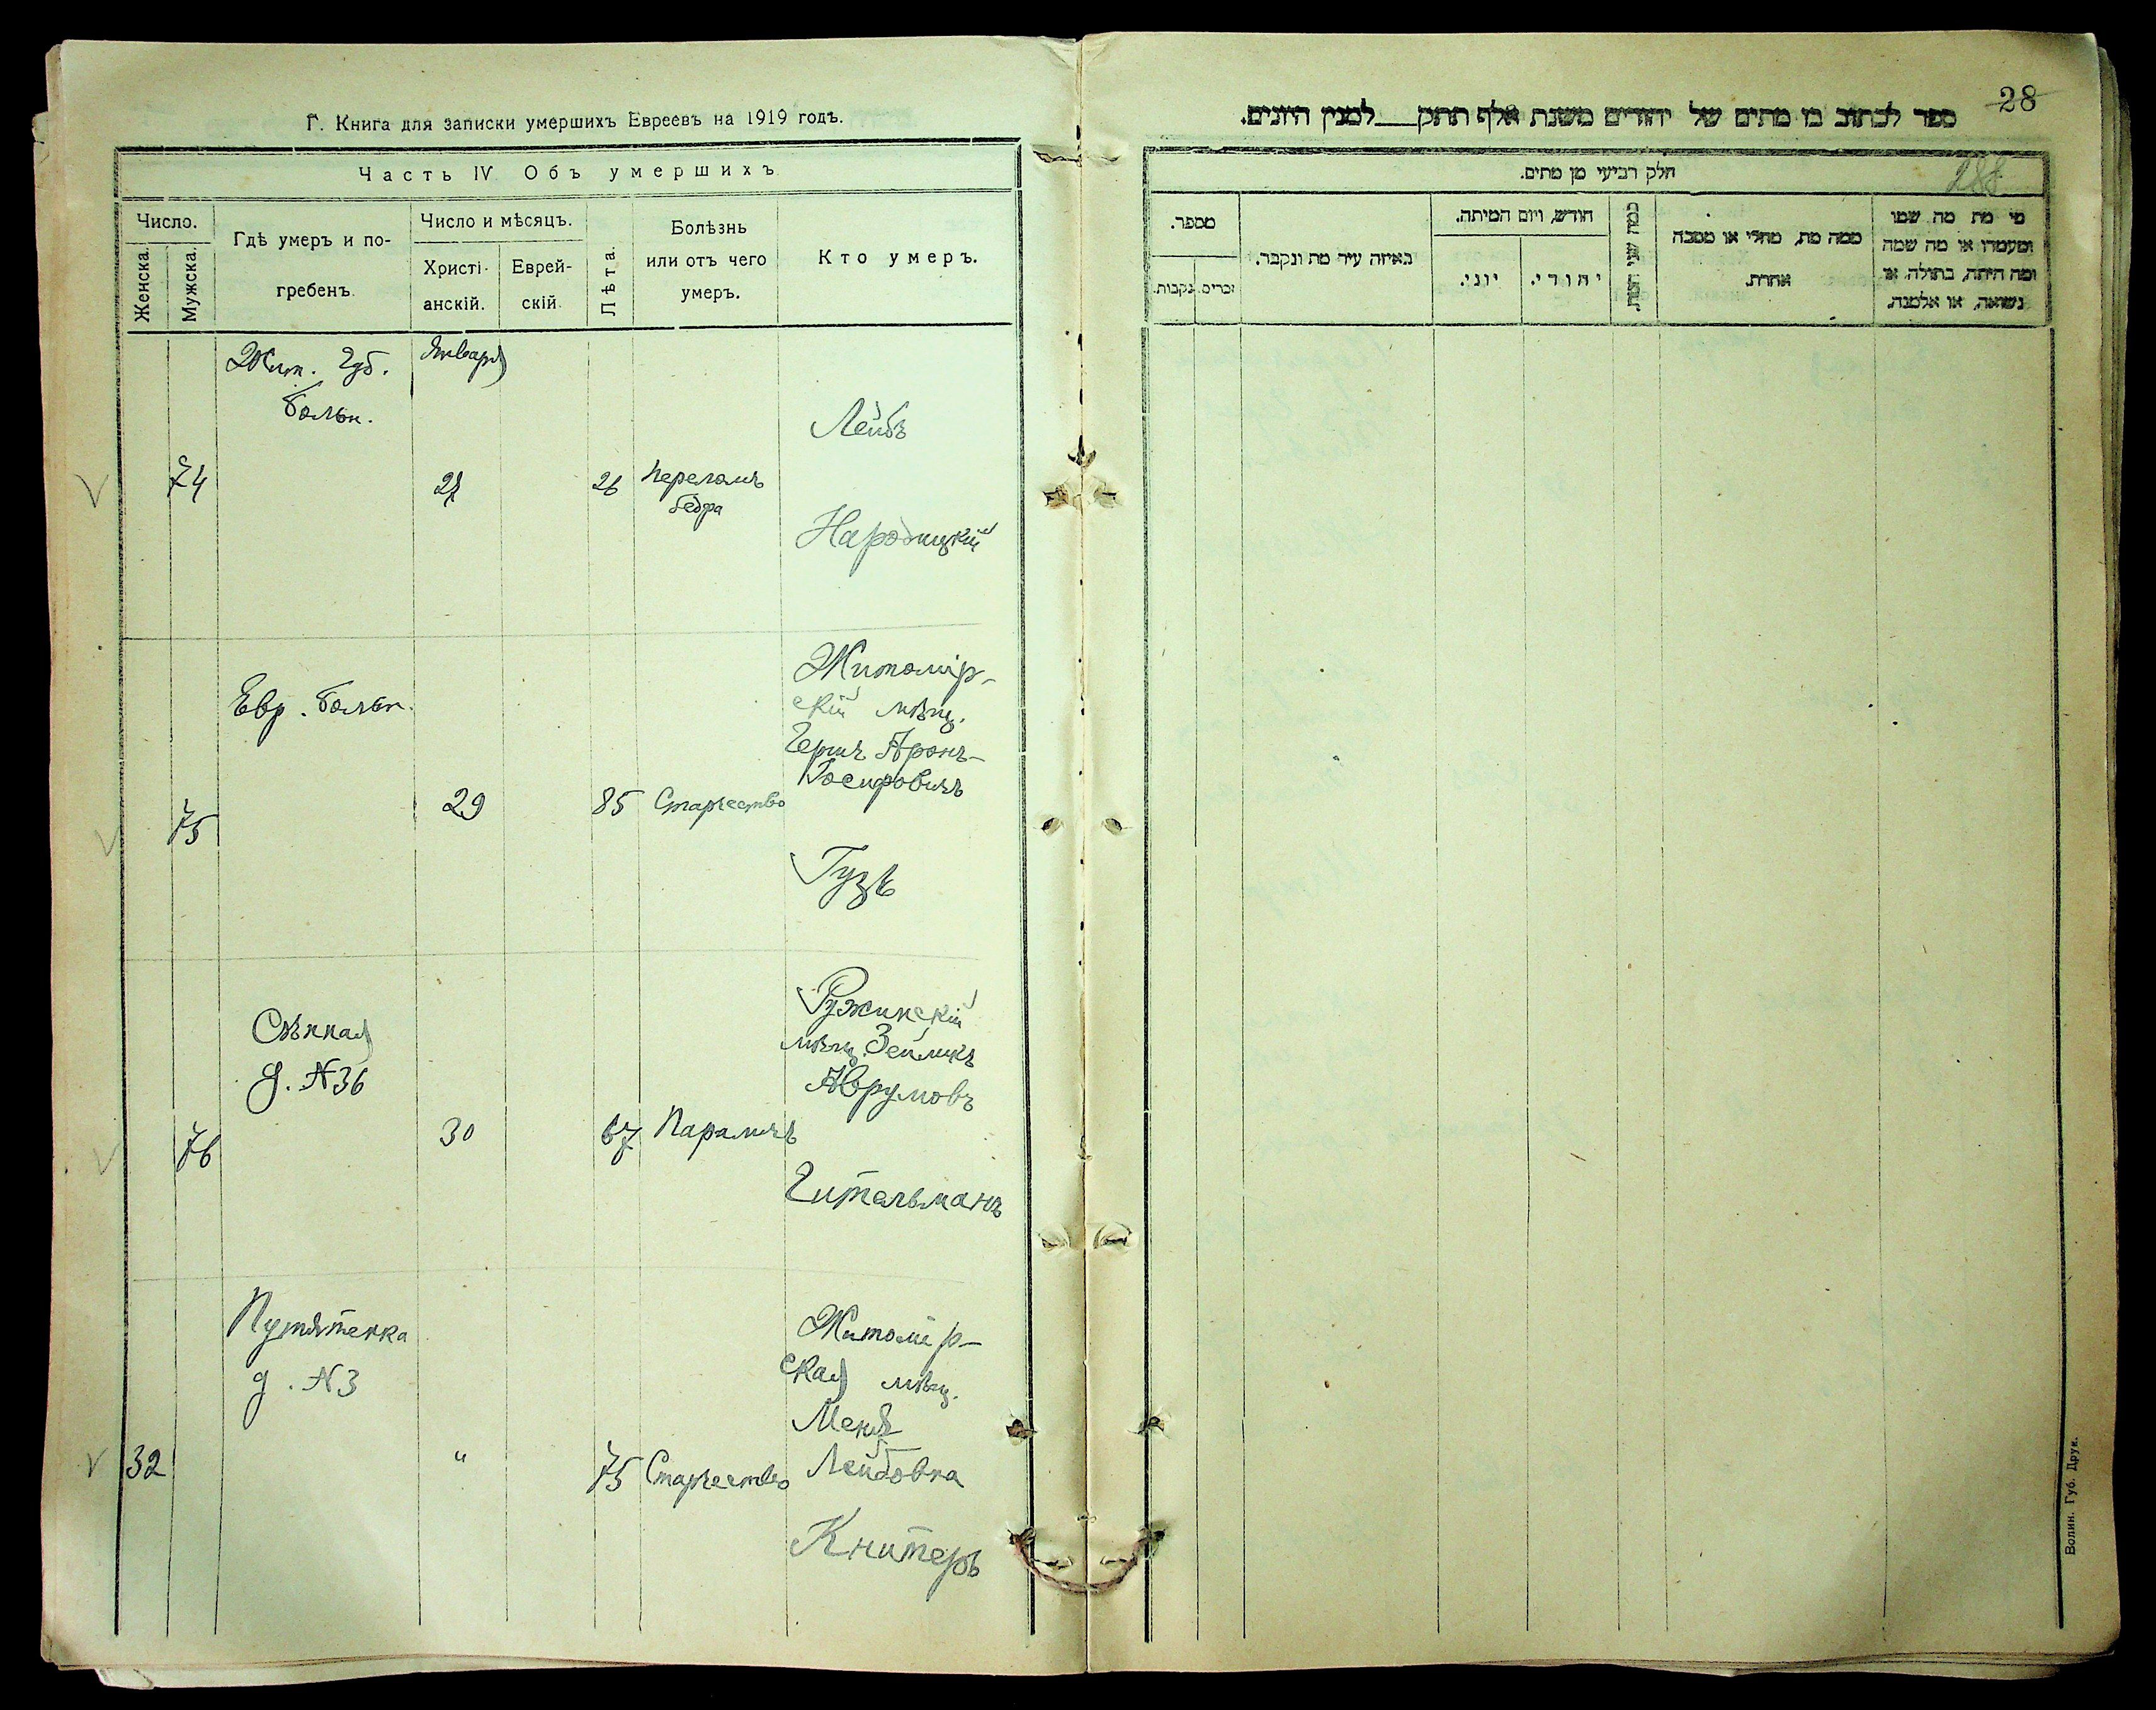 Г. Книга для записки умершихъ Евреевъ на 1919 годъ.
Часть IV Объ умершихъ
Число.
Женска.
Мужска.
Гдѣ умеръ и по-
гребенъ
Число и мѣсяцъ.
Христі-
анскій.
Еврей-
скій
Лѣта.
Болѣзнь
или отъ чего
умеръ.
Кто умеръ.
Жит. Губ.
Больн.
Января
74
27
26
Переломъ
бедра
Лейбъ
Народицкій
Евр. Больн.
75
29
85
Старчество
Житомір-
скій мѣщ.
Гершъ Аронъ-
Іосифовичъ
Гузъ
Сѣнная
д. №36
76
30
67
Параличъ
Ружинскій
мѣщ. Зейликъ
Аврумовъ
Гительманъ
Путятенка
д. №3
32
"
75
Старчество
Житомір-
ская мѣщ.
Меня
Лейбовна
Книтеръ
28
ספר לכתוב בו מתים של יהודים משנת אלף תתק___למנין היונים.
288
חלק רביעי מן מתים.
מספר.
נקבות.
זכרים.
באיזה עיר מת ונקבר.
חודש, ויום המיתה.
יוני.
יהודי.
כמה שני המת.
ממה מת, מחלי או מסבה
אחרת.
מי מת מה שמו
ומעמדו או מה שמה
ומה היתה, בתולה, או
נשואה, או אלמנה.
Волин. Губ. Друк.